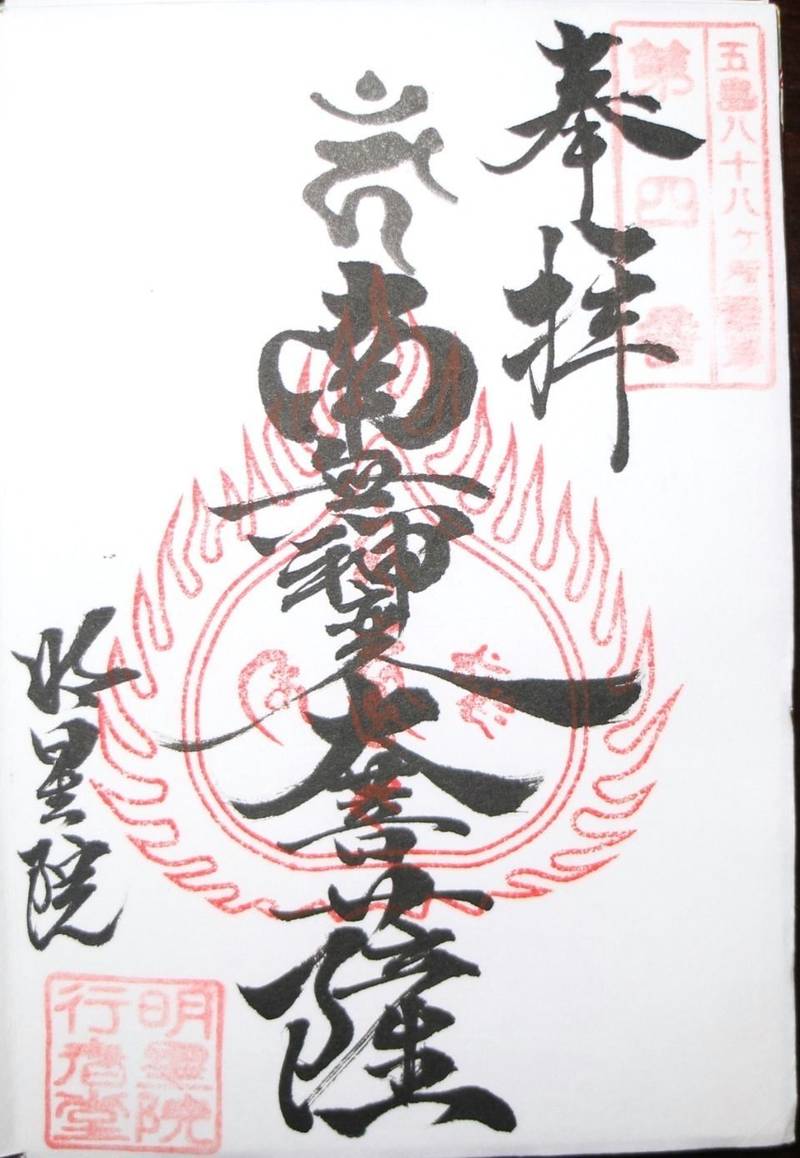 五島八十八ヶ所霊場
第四番
奉拝
南無神変大菩薩
明星院
明星院
行者堂